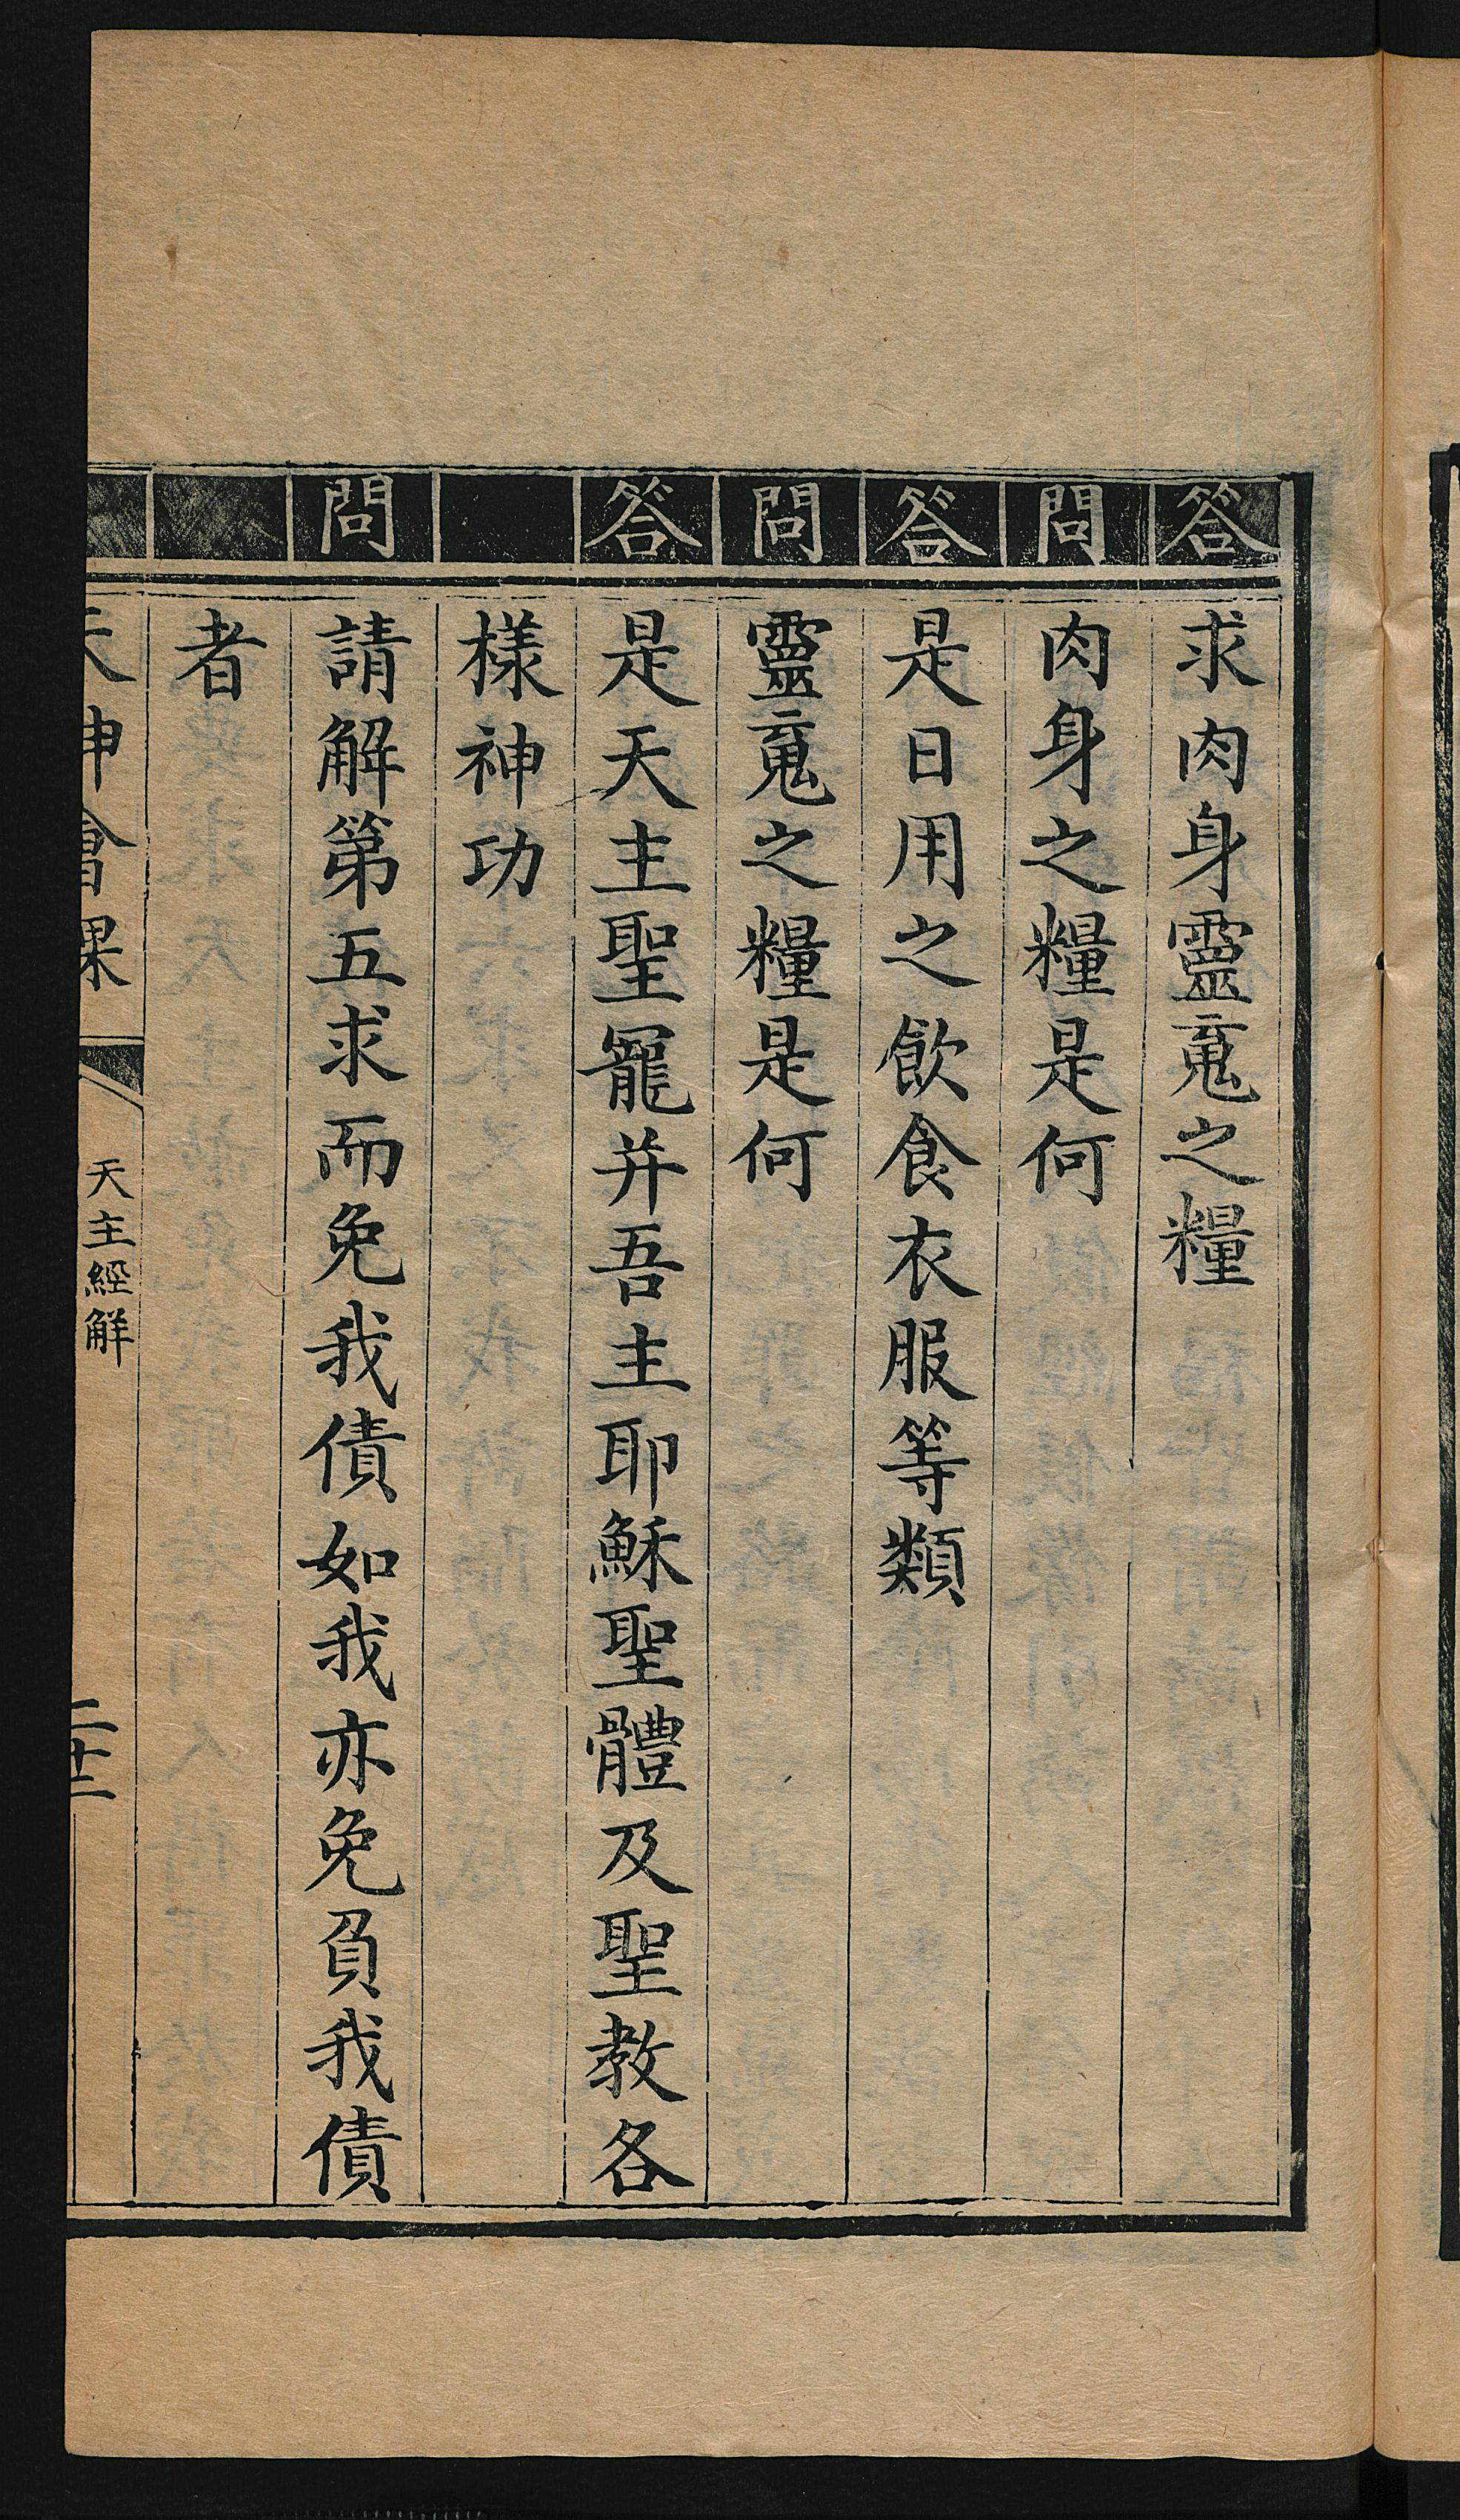 答 求肉身靈䰟之糧
問 肉身之糧是何
答 是日用之飲食衣服等類
問 靈䰟之糧是何
答 是天主聖寵并吾主耶穌聖體及聖教各
樣神功
問 請解第五求而免我債如我亦免負我債
者
天神會課 天主經解 二十二